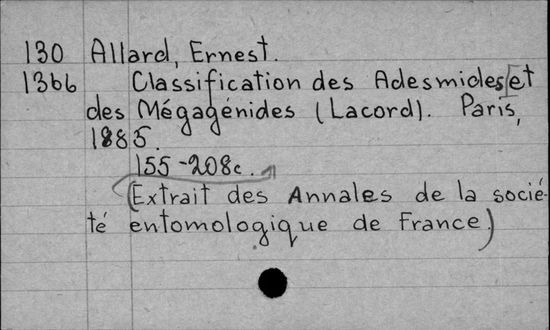 130 Allard, Ernest.
1366 Classification des Adesmides et
des Mégagénides (Lacord). Paris,
1885.
155-208c.
(Extrait des Annales de la socié-
té entomologique de France.)